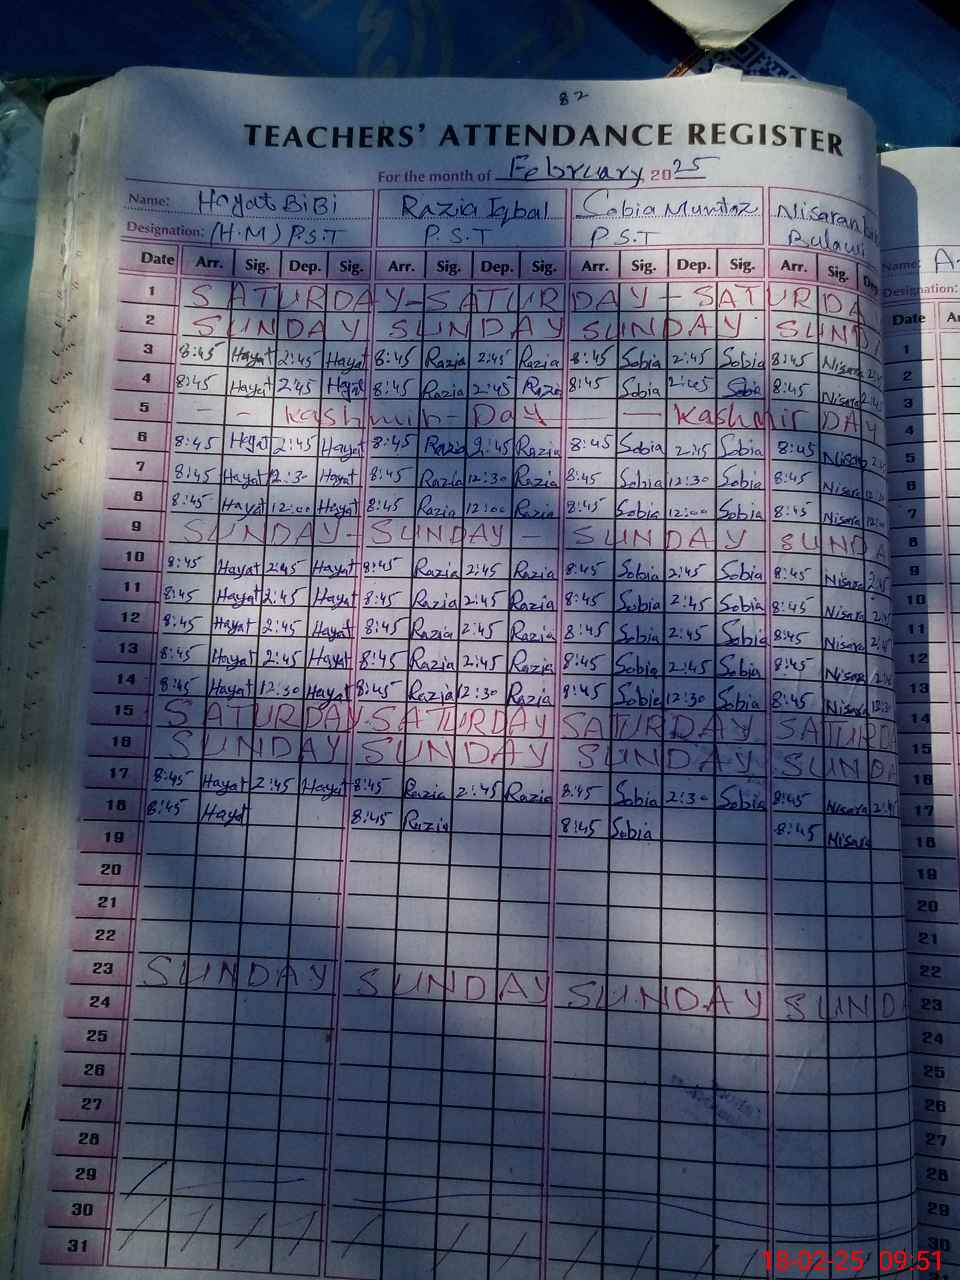 82
TEACHERS' ATTENDANCE REGISTER
For the month of February, 2025
Name: Hayat BiBi Razia Iqbal Sobia Mumtaz Nisaran
Designation: (H.M) P.S.T P.S.T P.S.T
Date Arr. Sig. Dep. Sig. Arr. Sig. Dep. Sig. Arr. Sig. Dep. Sig. Arr. Sig. Dep
1 SATURDAY-SATURDAY-SATURDA
2 SUNDAY SUNDAY SUNDAY SUND
3 8:45 Hayat 2:45 Hayat 8:45 Razia 2:45 Razia 8:45 Sobia 2:45 Sobia 8:45 Nisara 2:45
4 8:45 Hayat 2:45 Hayat 8:45 Razia 2:45 Razia 8:45 Sobia 2:45 Sobia 8:45 Nisara 2:45
5 - - Kashmir-Day - Kashmir DAY
6 8:45 Hayat 2:45 Hayat 8:45 Razia 2:45 Razia 8:45 Sobia 2:45 Sobia 8:45 Nisara
7 8:45 Hayat 12:30 Hayat 8:45 Razia 12:30 Razia 8:45 Sobia 12:30 Sobia 8:45 Nisara
8 8:45 Hayat 12:00 Hayat 8:45 Razia 12:00 Razia 8:45 Sobia 12:00 Sobia 8:45 Nisara 12:00
9 SUNDAY-SUNDAY- SUNDAY SUNDA
10 8:45 Hayat 2:45 Hayat 8:45 Razia 2:45 Razia 8:45 Sobia 2:45 Sobia 8:45 Nisara 2:45
11 8:45 Hayat 2:45 Hayat 8:45 Razia 2:45 Razia 8:45 Sobia 2:45 Sobia 8:45 Nisara 2:45
12 8:45 Hayat 2:45 Hayat 8:45 Razia 2:45 Razia 8:45 Sobia 2:45 Sobia 8:45 Nisara 2:45
13 8:45 Hayat 2:45 Hayat 8:45 Razia 2:45 Razia 8:45 Sobia 2:45 Sobia 8:45 Nisara
14 8:45 Hayat 12:30 Hayat 8:45 Razia 12:30 Razia 8:45 Sobia 12:30 Sobia 8:45 Nisara 12:30
15 SATURDAY SATURDAY SATURDAY SATURD
16 SUNDAY SUNDAY SUNDAY SUNDA
17 8:45 Hayat 2:45 Hayat 8:45 Razia 2:45 Razia 8:45 Sobia 2:30 Sobia 8:45 Nisara 2:45
18 8:45 Hayat 8:45 Razia 8:45 Sobia 8:45 Nisara
19
20
21
22
23 SUNDAY SUNDAY SUNDAY SUND
24
25
26
27
28
29
30
31
Name: A
Designation:
Date
1
2
3
4
5
6
7
8
9
10
11
12
13
14
15
16
17
18
19
20
21
22
23
24
25
26
27
28
29
30
18-02-25 09:51